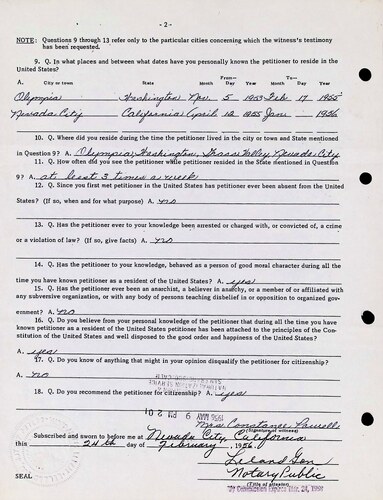 - 2 -
NOTE: Questions 9 through 13 refer only to the particular cities concerning which the witness's testimony
has been requested.
9. Q. In what places and between what dates have you personally known the petitioner to reside in the
United States?
From— To—
A. City or town State Month Day Year Month Day Year
Olympia Washington Nov. 5 1953 Feb. 17 1955
Nevada City California April 12 1955 Jan. 1956
10. Q. Where did you reside during the time the petitioner lived in the city or town and State mentioned
in Question 9? A. Olympia, Washington, Grass Valley, Nevada City
11. Q. How often did you see the petitioner while petitioner resided in the State mentioned in Question
9? A. at best 3 times a week
12. Q. Since you first met petitioner in the United States has petitioner ever been absent from the United
States? (If so, when and for what purpose) A. no
13. Q. Has the petitioner ever to your knowledge been arrested or charged with, or convicted of, a crime
or a violation of law? (If so, give facts) A. no
14. Q. Has the petitioner to your knowledge, behaved as a person of good moral character during all the
time you have known petitioner as a resident of the United States? A. yes
15. Q. Has the petitioner ever been an anarchist, a believer in anarchy, or a member of or affiliated with
any subversive organization, or with any body of persons teaching disbelief in or opposition to organized gov-
ernment? A. no
16. Q. Do you believe from your personal knowledge of the petitioner that during all the time you have
known petitioner as a resident of the United States petitioner has been attached to the principles of the Con-
stitution of the United States and well disposed to the good order and happiness of the United States?
A. yes
17. Q. Do you know of anything that might in your opinion disqualify the petitioner for citizenship?
A. no
18. Q. Do you recommend the petitioner for citizenship? A. yes
1956 MAY 9 PM 2 01
Mrs Constance
(Signature of witness)
Subscribed and sworn to before me at Nevada City, California
this 24th day of February, 1956.
Notary Public
SEAL
(Title of attestor)
My Commission Expires